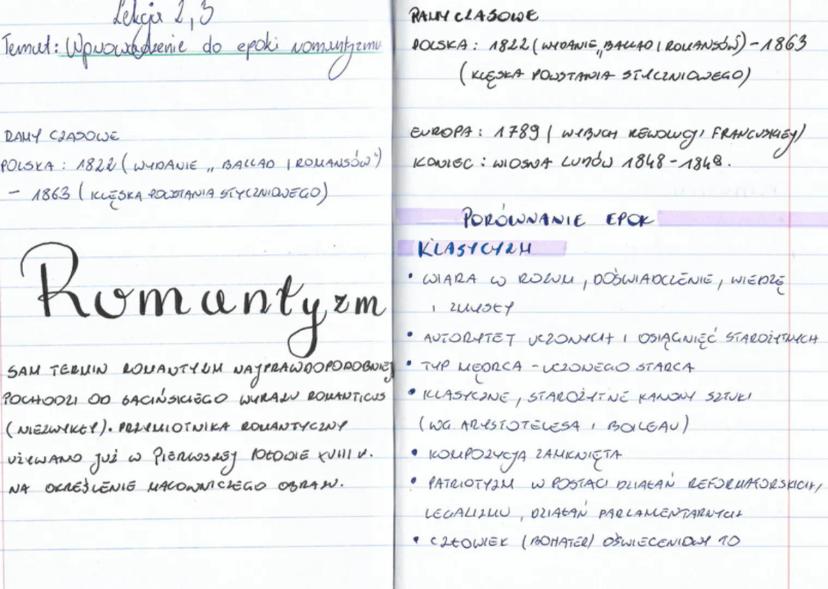 Lekcja 2, 3
Temat: Wprowadzenie do epoki romantyzmu
RAMY CZASOWE
POLSKA : 1822 ( WYDANIE „ BALLAD I ROMANSÓW")
– 1863 ( KLĘSKA POWSTANIA STYCZNIOWEGO)
Romantyzm
SAM TERMIN ROMANTYZM NAJPRAWDOPODOBNIEJ
POCHODZI OD ŁACIŃSKIEGO WYRAZU ROMANTICUS
( NIEZWYKŁY). PRZYMIOTNIKA ROMANTYCZNY
UŻYWANO JUŻ W PIERWSZEJ POŁOWIE XVIII W.
NA OKREŚLENIE MALOWNICZEGO OBRAZU.
RAMY CZASOWE
POLSKA : 1822 ( WYDANIE „BALLAD I ROMANSÓW) – 1863
( KLĘSKA POWSTANIA STYCZNIOWEGO)
EUROPA : 1789 ( WYBUCH REWOLUCJI FRANCUSKIEJ)
KONIEC : WIOSNA LUDÓW 1848 - 1849.
PORÓWNANIE EPOK
KLASYCYZM
• WIARA W ROZUM , DOŚWIADCZENIE , WIEDZĘ
I ZMYSŁY
• AUTORYTET UCZONYCH I OSIĄGNIĘĆ STAROŻYTNYCH
• TYP MĘDRCA - UCZONEGO STARCA
• KLASYCZNE , STAROŻYTNE KANONY SZTUKI
(WG ARYSTOTELESA I BOILEAU)
• KOMPOZYCJA ZAMKNIĘTA
• PATRIOTYZM W POSTACI DZIAŁAŃ REFORMATORSKICH,
LEGALIZMU , DZIAŁAŃ PARLAMENTARNYCH
• CZŁOWIEK (BOHATER) OŚWIECENIOWY TO